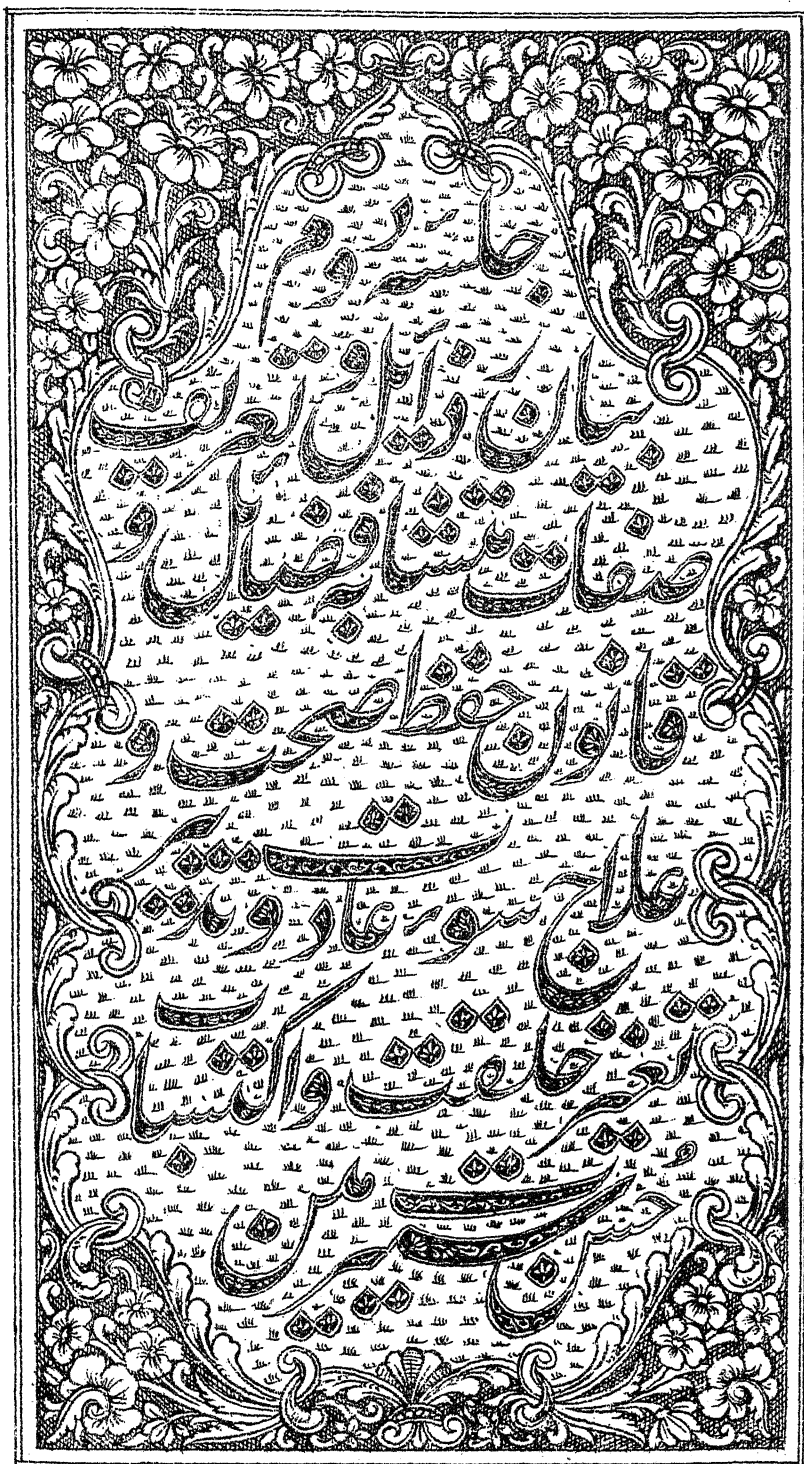 جلسهٔ دوم
بیان رذایل و تعریف
صفات متشابه فضایل و
قانون حفظ صحت و
علاج سوء عادت و تدبیر
تغییر خلقت و اکتساب
حسن سیرت من